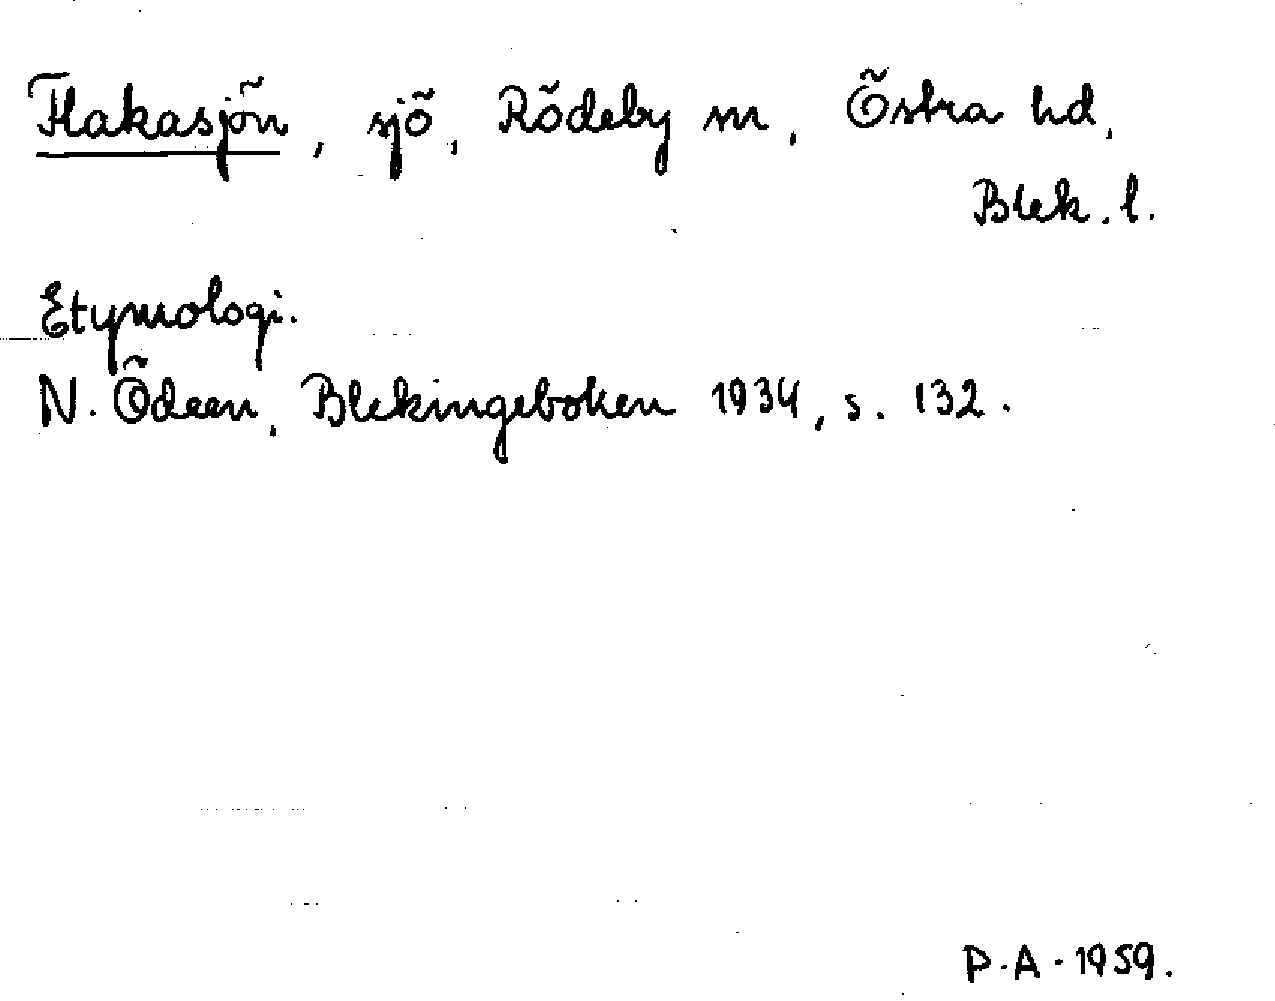 Flakasjön, sjö, Rödeby sn, Östra hd,
Blek. l.
Etymologi.
N. Ödeen, Blekingeboken 1934, s. 132.
P.A. 1959.